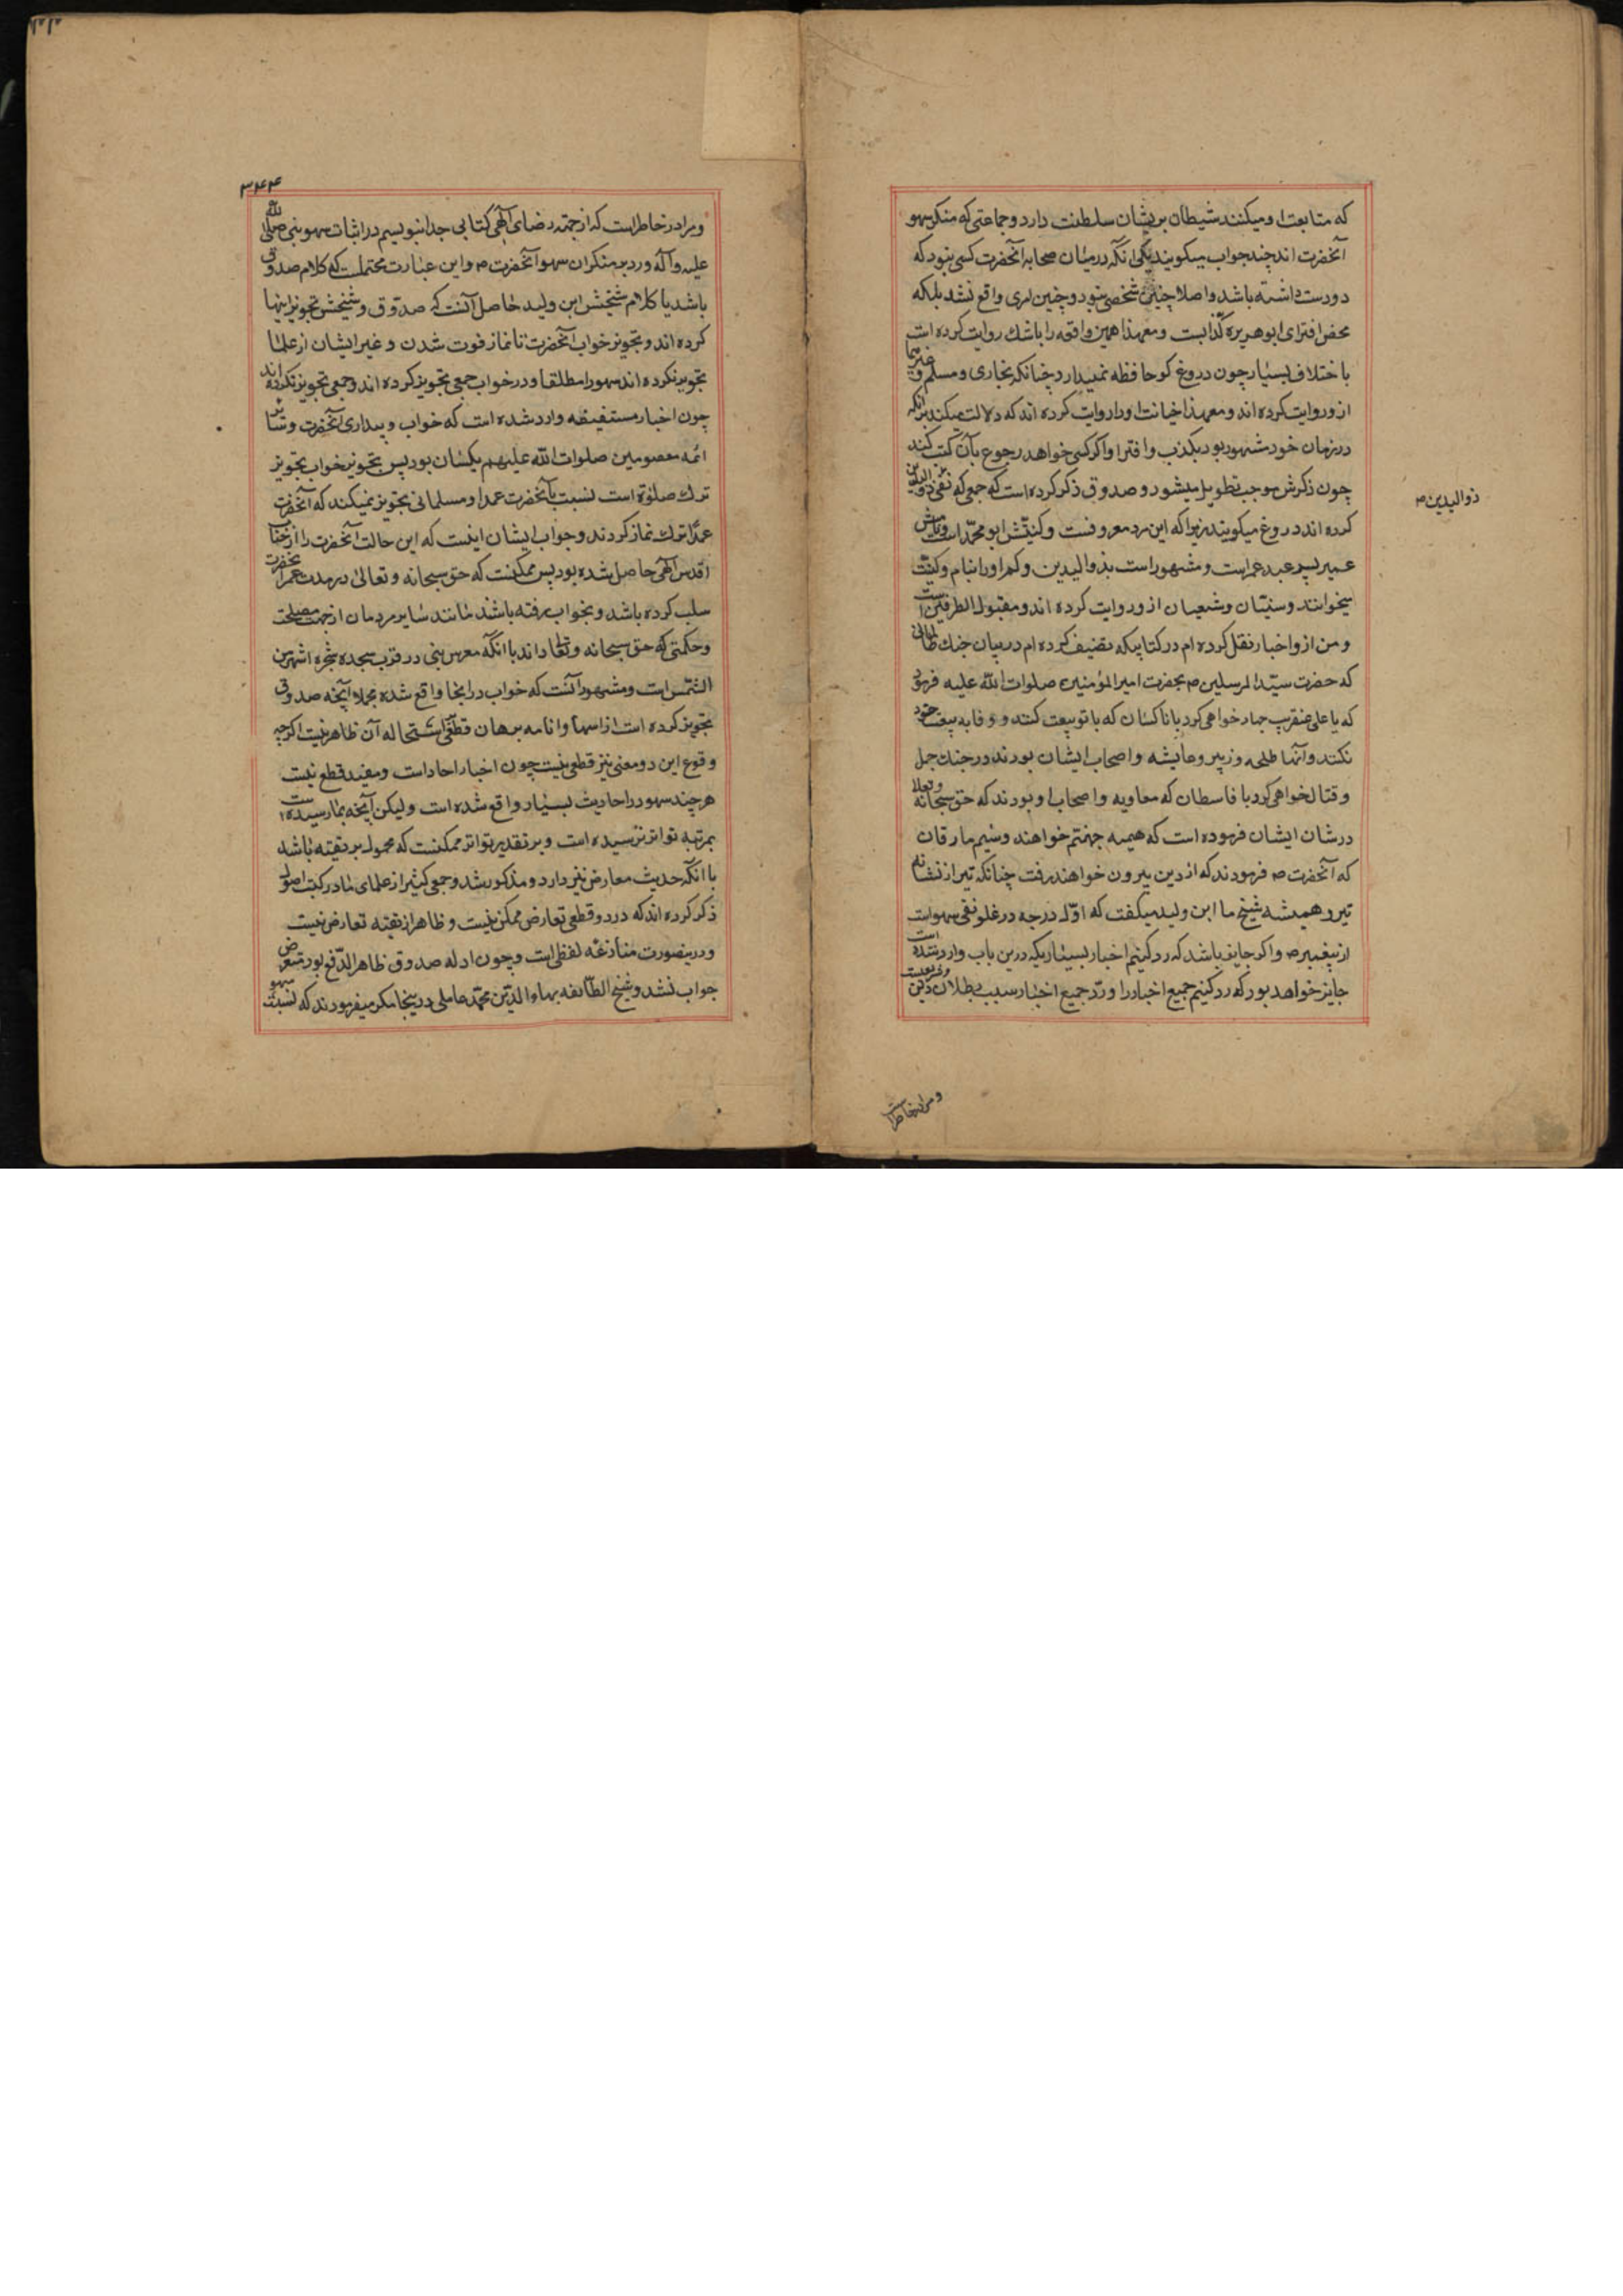 که متابعت او میکنند شیطان بریشان سلطنت دارد و جماعتی که منکر سهو
آنحضرت اند چند جواب میکویند یکی انکه درمیان صحابه آنحضرت کسی نبود که
دو دست داشته باشد و اصلا چنین شخصی نبود و چنین امری واقع نشد بلکه
محض افترای ابوهریره کذابست و معهذا همین واقعه را باشك روایت کرده است
با اختلاف بسیار چون دروغ کو حافظه نمیدارد چنانکه بخاری و مسلم و غیرهما
ازو روایت کرده اند و معهذا خیانت او را روایت کرده اند که دلالت میکند برآنکه
در زمان خود مشهور بود بکذب و افترا و اکر کسی خواهد رجوع بآن کتب کند
چون ذکرش موجب تطویل میشود و صدوق ذکر کرده است که جمعی که نفی ذوالیدین
ذوالیدین م
کرده اند دروغ میکویند زیرا که این مرد معروفست و کنیتش ابو محمد است و نامش
عمیر پسر عبد عمر است و مشهور است بذوالیدین و کم او را بنام و کنیت
میخوانند و سنیان و شعیان ازو روایت کرده اند و مقبول الطرفین است
و من ازو اخبار نقل کرده ام در کتابیکه تصنیف کرده ام در بیان جنك ظالمانی
که حضرت سید المرسلین ص بحضرت امیر المؤمنین صلوات الله علیه فرمود
که یا علی عنقریب جهاد خواهی کرد با ناکسان که با تو بیعت کنند و وفا به بیعت خود
نکنند و آنها طلحه و زبیر و عایشه و اصحاب ایشان بودند در جنك جمل
و قتال خواهی کرد با قاسطان که معاویه و اصحاب او بودند که حق سبحانه و تعالی
در شان ایشان فرموده است که هیمه جهنم خواهند و سیم مارقان
که آنحضرت ص فرمودند که از دین بیرون خواهند رفت چنانکه تیر از نشانه
تیر و همیشه شیخ ما ابن ولید میکفت که اوّل درجه در غلو نفی سهو است
از پیغمبر ص و اکر جایز باشد که رد کنیم اخبار بسیاریکه درین باب وارد شده است
جایز خواهد بود که رد کنیم جمیع اخبار را و ردّ جمیع اخبار سبب بطلان دین و شریعتست
و مرا در خاطر است
۳۴۴
و مرا در خاطر است که از جهة رضای الهی کتابی جدا بنویسم در اثبات سهو نبی صلی الله
علیه و آله و رد بر منکران سهو آنحضرت ص و این عبارت محتملست که کلام صدوق
باشد یا کلام شیخش ابن ولید حاصل آنست که صدوق و شیخش تجویز اینها
کرده اند و تجویز خواب آنحضرت تا نماز فوت شدن و غیر ایشان از علما
تجویز نکرده اند سهو را مطلقا و در خواب جمعی تجویز کرده اند و جمعی تجویز نکرده اند
چون اخبار مستفیضه وارد شده است که خواب و بیداری آنحضرت و سایر
ائمه معصومین صلوات الله علیهم یکسان بود پس تجویز خواب تجویز
ترك صلوة است نسبت بآنحضرت عمدا و مسلمانی تجویز نمیکند که آنحضرت
عمداً ترك نماز کردند و جواب ایشان اینست که این حالت آنحضرت را از جناب
اقدس الهی حاصل شده بود پس ممکنست که حق سبحانه و تعالی در مدت عمر آنحضرت
سلب کرده باشد و بخواب رفته باشند مانند سایر مردمان از جهت مصلحت
و حکمتی که حق سبحانه و تعالی داند با آنکه معرس نبی در قرب مسجد شجره اشهر من
الشمس است و مشهور آنست که خواب در انجا واقع شده مجملا آنچه صدوق
تجویز کرده است از اسهاء و انامه برهان قطعی استحاله آن ظاهر نیست اکرچه
وقوع این دو معنی نیز قطعی نیست چون اخبار احاد است و مفید قطع نیست
هرچند سهو در احادیث بسیار واقع شده است و لیکن آنچه بما رسیده است
بمرتبه تواتر نرسیده است و بر تقدیر تواتر ممکنست که محمول بر تقیه باشد
با انکه حدیث معارض نیز دارد و مذکور شد و جمعی کثیر از علمای ما در کتب اصول
ذکر کرده اند که در دو قطعی تعارض ممکن نیست و ظاهرا از تقیه تعارض نیست
و درینصورت منازعه لفظی است و چون ادله صدوق ظاهر الدفع بود متعرض
جواب نشد و شیخ الطایفه بهاء الدین محمد عاملی در اینجا مکرر میفرمودند که نسبت سهو